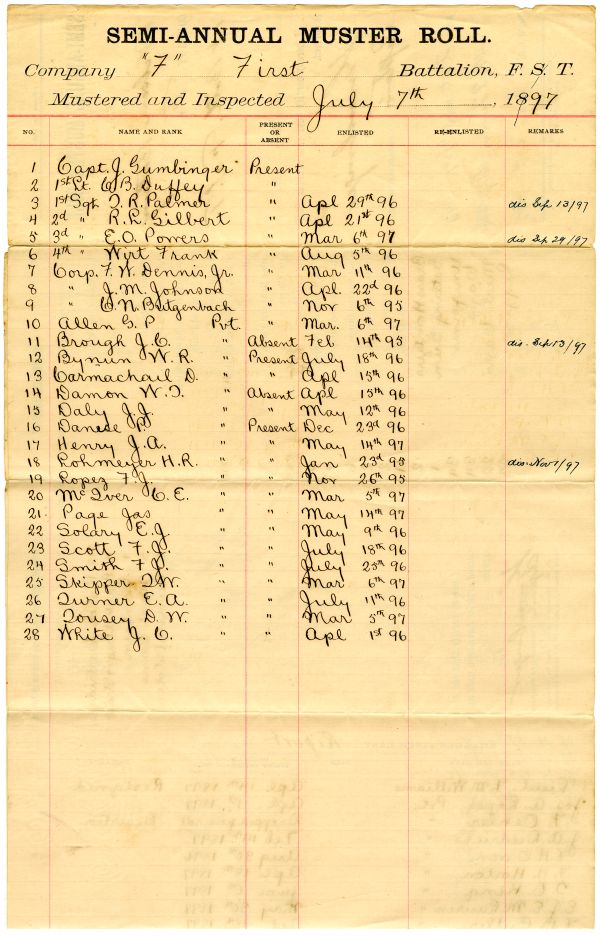 SEMI-ANNUAL MUSTER ROLL.
Company "F" First Battalion, F. S. T.
Mustered and Inspected July 7th, 1897
NO. NAME AND RANK PRESENT OR ABSENT ENLISTED RE-ENLISTED REMARKS
1 Capt. J. Gumbinger Present
2 1st Lt. C. B. Duffey "
3 1st Sgt. T. R. Palmer " Apl 29th 96 dis Sep 13/97
4 2d " R. L. Gilbert " Apl 21st 96
5 3d " E. O. Powers " Mar 6th 97 dis Sep 29/97
6 4th " Wirt Frank " Aug 5th 96
7 Corp. F. W. Dennis, Jr. " Mar 11th 96
8 " J. M. Johnson " Apl. 22d 96
9 " C. N. Butgenbach " Nov 6th 95
10 Allen G. P Pvt. " Mar. 6th 97
11 Brough J. C. " Absent Feb 14th 95 dis. Sep 13/97
12 Bynum W. R. " Present July 18th 96
13 Carmachail D. " " Apl 15th 96
14 Damon W. T. " Absent Apl 15th 96
15 Daly J. J. " " May 12th 96
16 Danese P. " Present Dec 23d 96
17 Henry J. A. " " May 14th 97
18 Lohmeyer H. R. " " Jan 23d 95 dis. Nov 1/97
19 Lopez F. J. " " Nov 26th 95
20 McIver C. E. " " Mar 5th 97
21. Page Jas " " May 14th 97
22 Solary E. J. " " May 9th 96
23 Scott F. J. " " July 18th 96
24 Smith F. J. " " July 25th 96
25 Skipper T. W. " " Mar 6th 97
26 Turner E. A. " " July 11th 96
27 Tousey D. W. " " Mar 5th 97
28 White J. C. " " Apl 1st 96